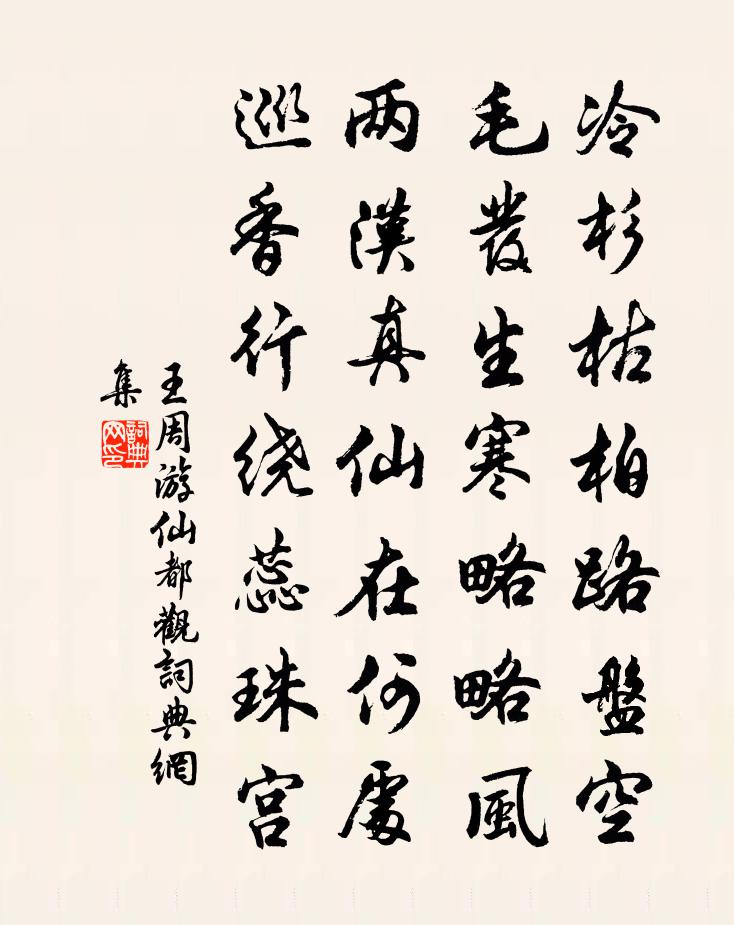 冷杉枯柏路盤空
毛發生寒略略風
两漢真仙在何處
巡香行绕蕊珠宫
王周游仙都觀詞典網
集
詞典网印